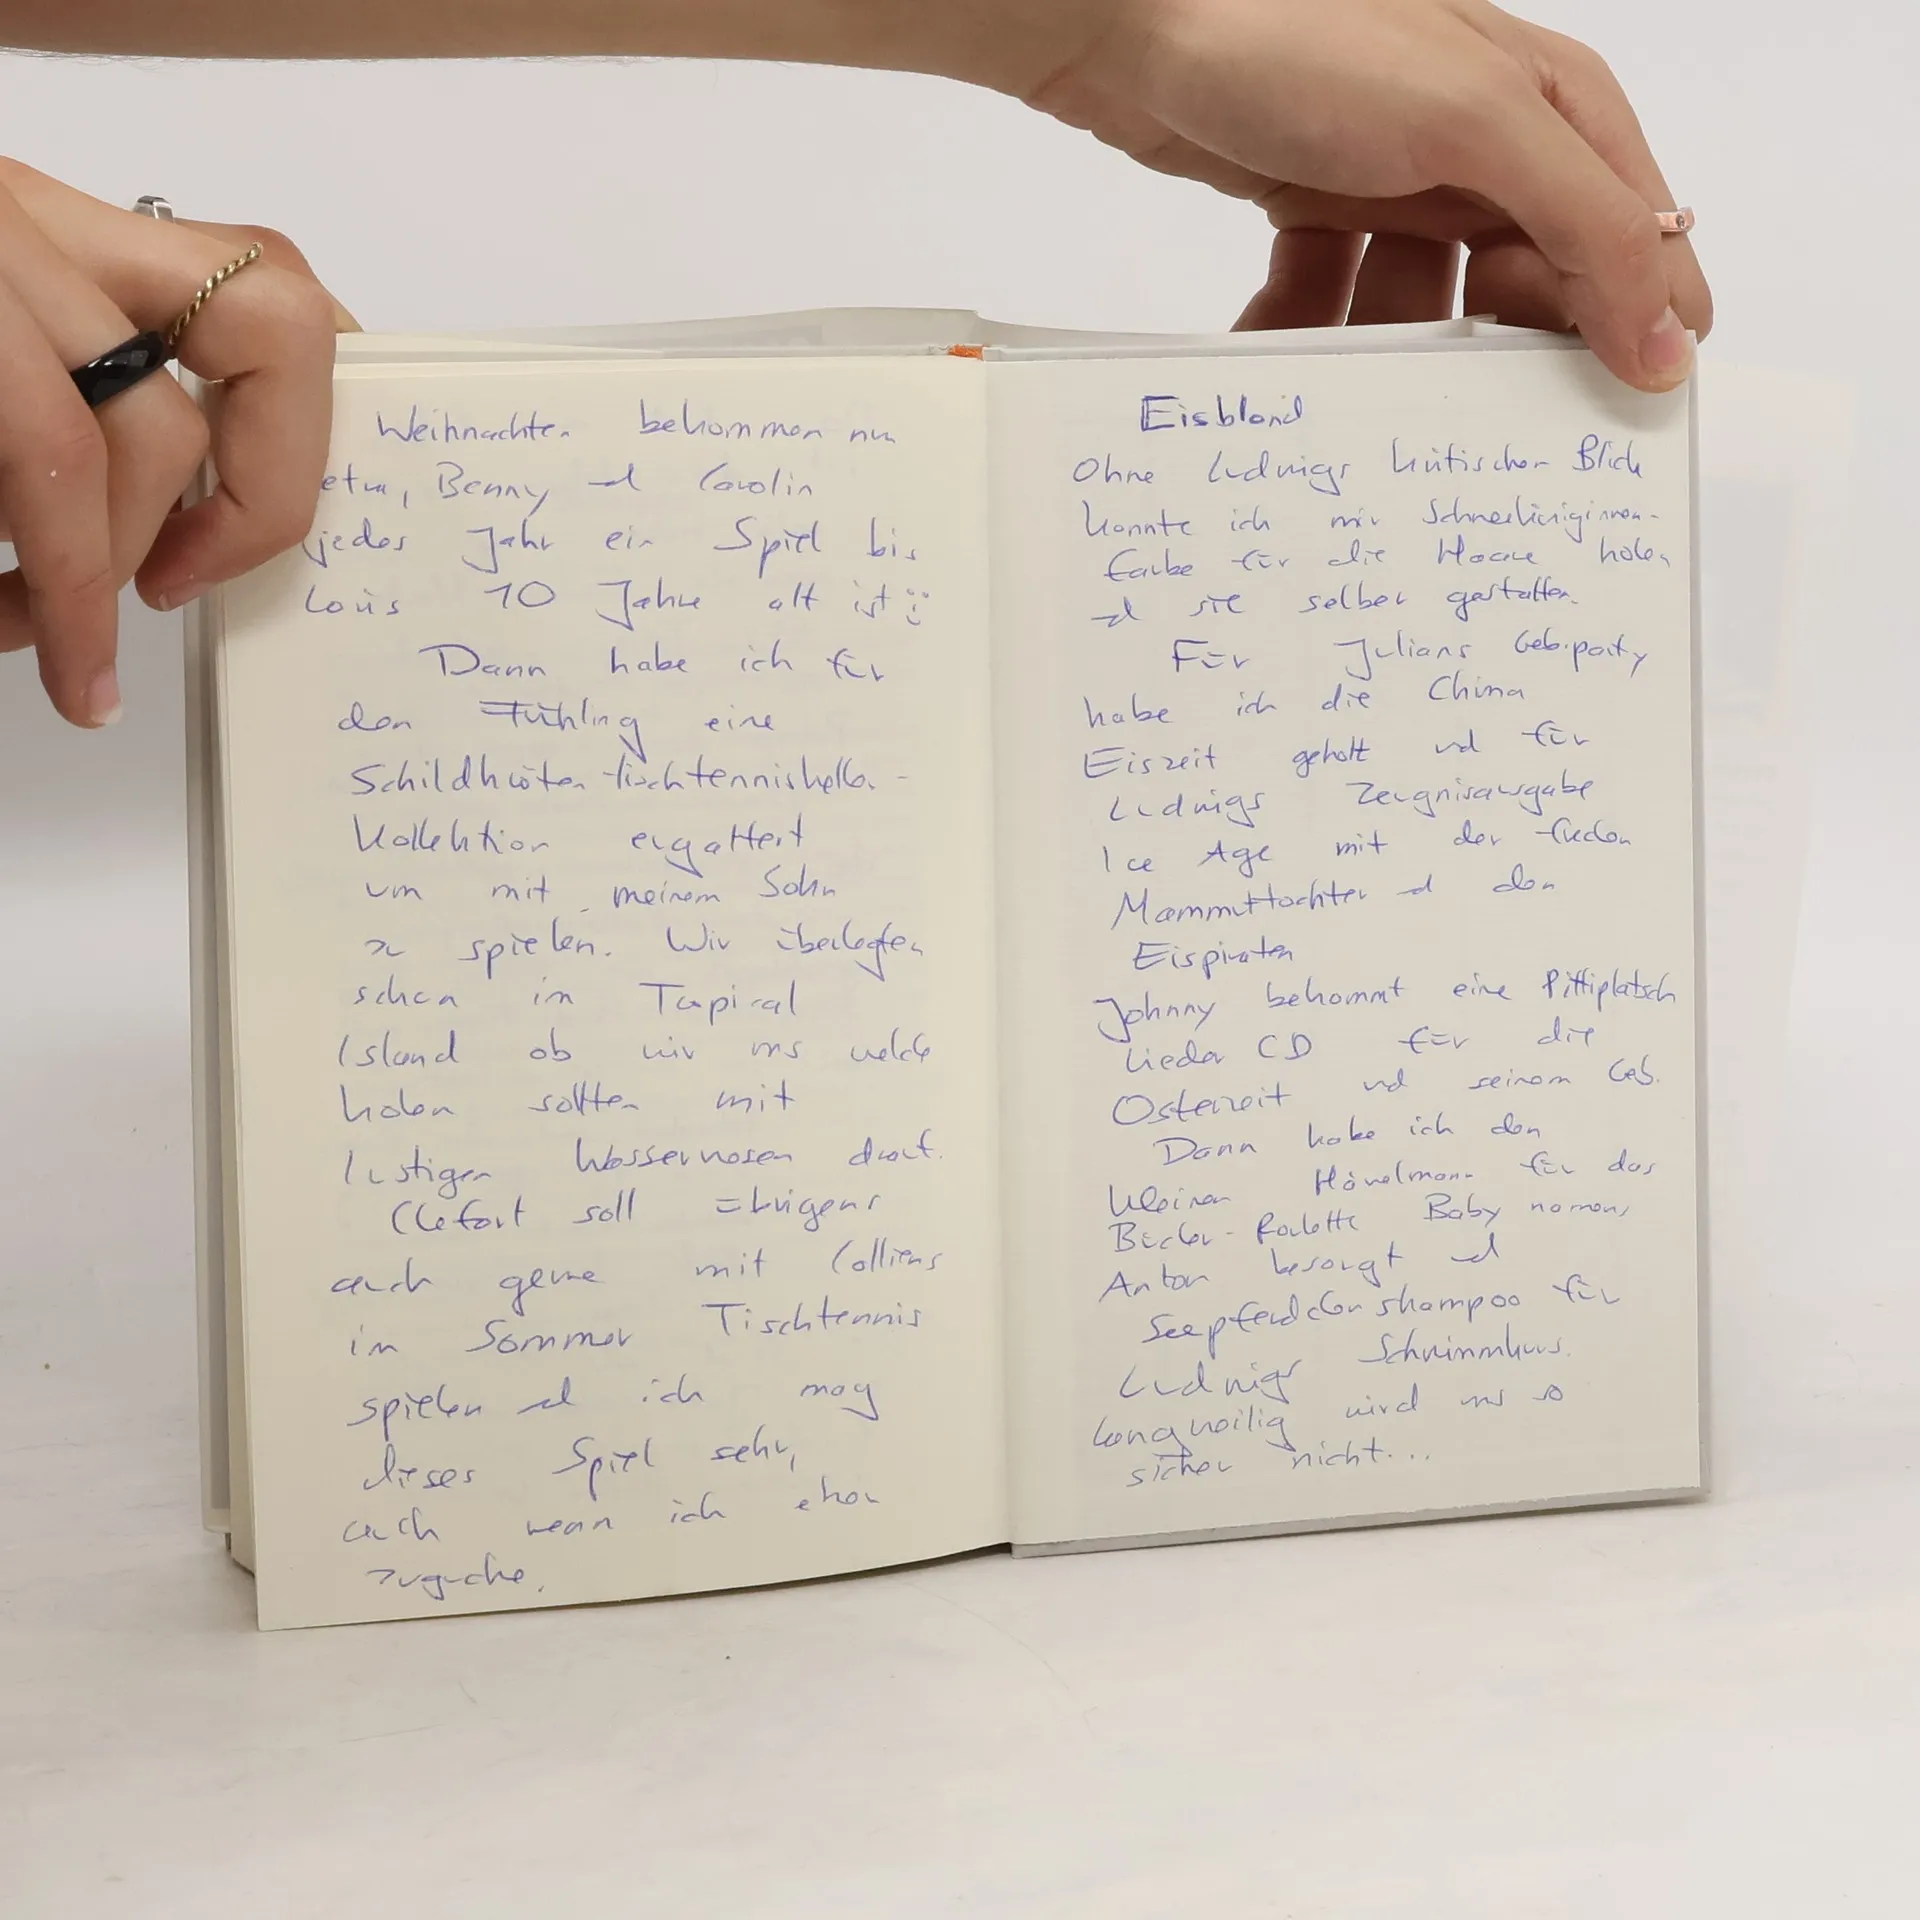 Weihnachten bekommen nun
etra, Benny und Carolin
jedes Jahr ein Spiel bis
Louis 10 Jahre alt ist
Dann habe ich für
den Frühling eine
Schildkröten-tischtenniskellen-
Kollektion ergattert
um mit meinem Sohn
zu spielen. Wir überlegten
schon in Tropical
Island ob wir uns welche
holen sollten mit
lustigen Wassernasen drauf.
soll übrigens
auch gerne mit Colliens
im Sommer Tischtennis
spielen und ich mag
dieses Spiel sehr,
auch wenn ich eher
zugucke.
Eisblond
Ohne Ludwigs kritischen Blick
konnte ich mir Schneeköniginnen-
farbe für die Haare holen
und sie selber gestalten.
Für Julians Geb.party
habe ich die China
Eiszeit geholt und für
Ludwigs Zeugnisausgabe
Ice Age mit der
Mammuttochter und den
Eispiraten
Johnny bekommt eine Pittiplatsch
Lieder CD für die
Osterzeit und seinem Geb.
Dann habe ich den
kleinen Häwelmann für das
Baby namens
Anton besorgt und
Seepferdchenshampoo für
Ludwigs Schwimmkurs.
langweilig wird uns so
sicher nicht...